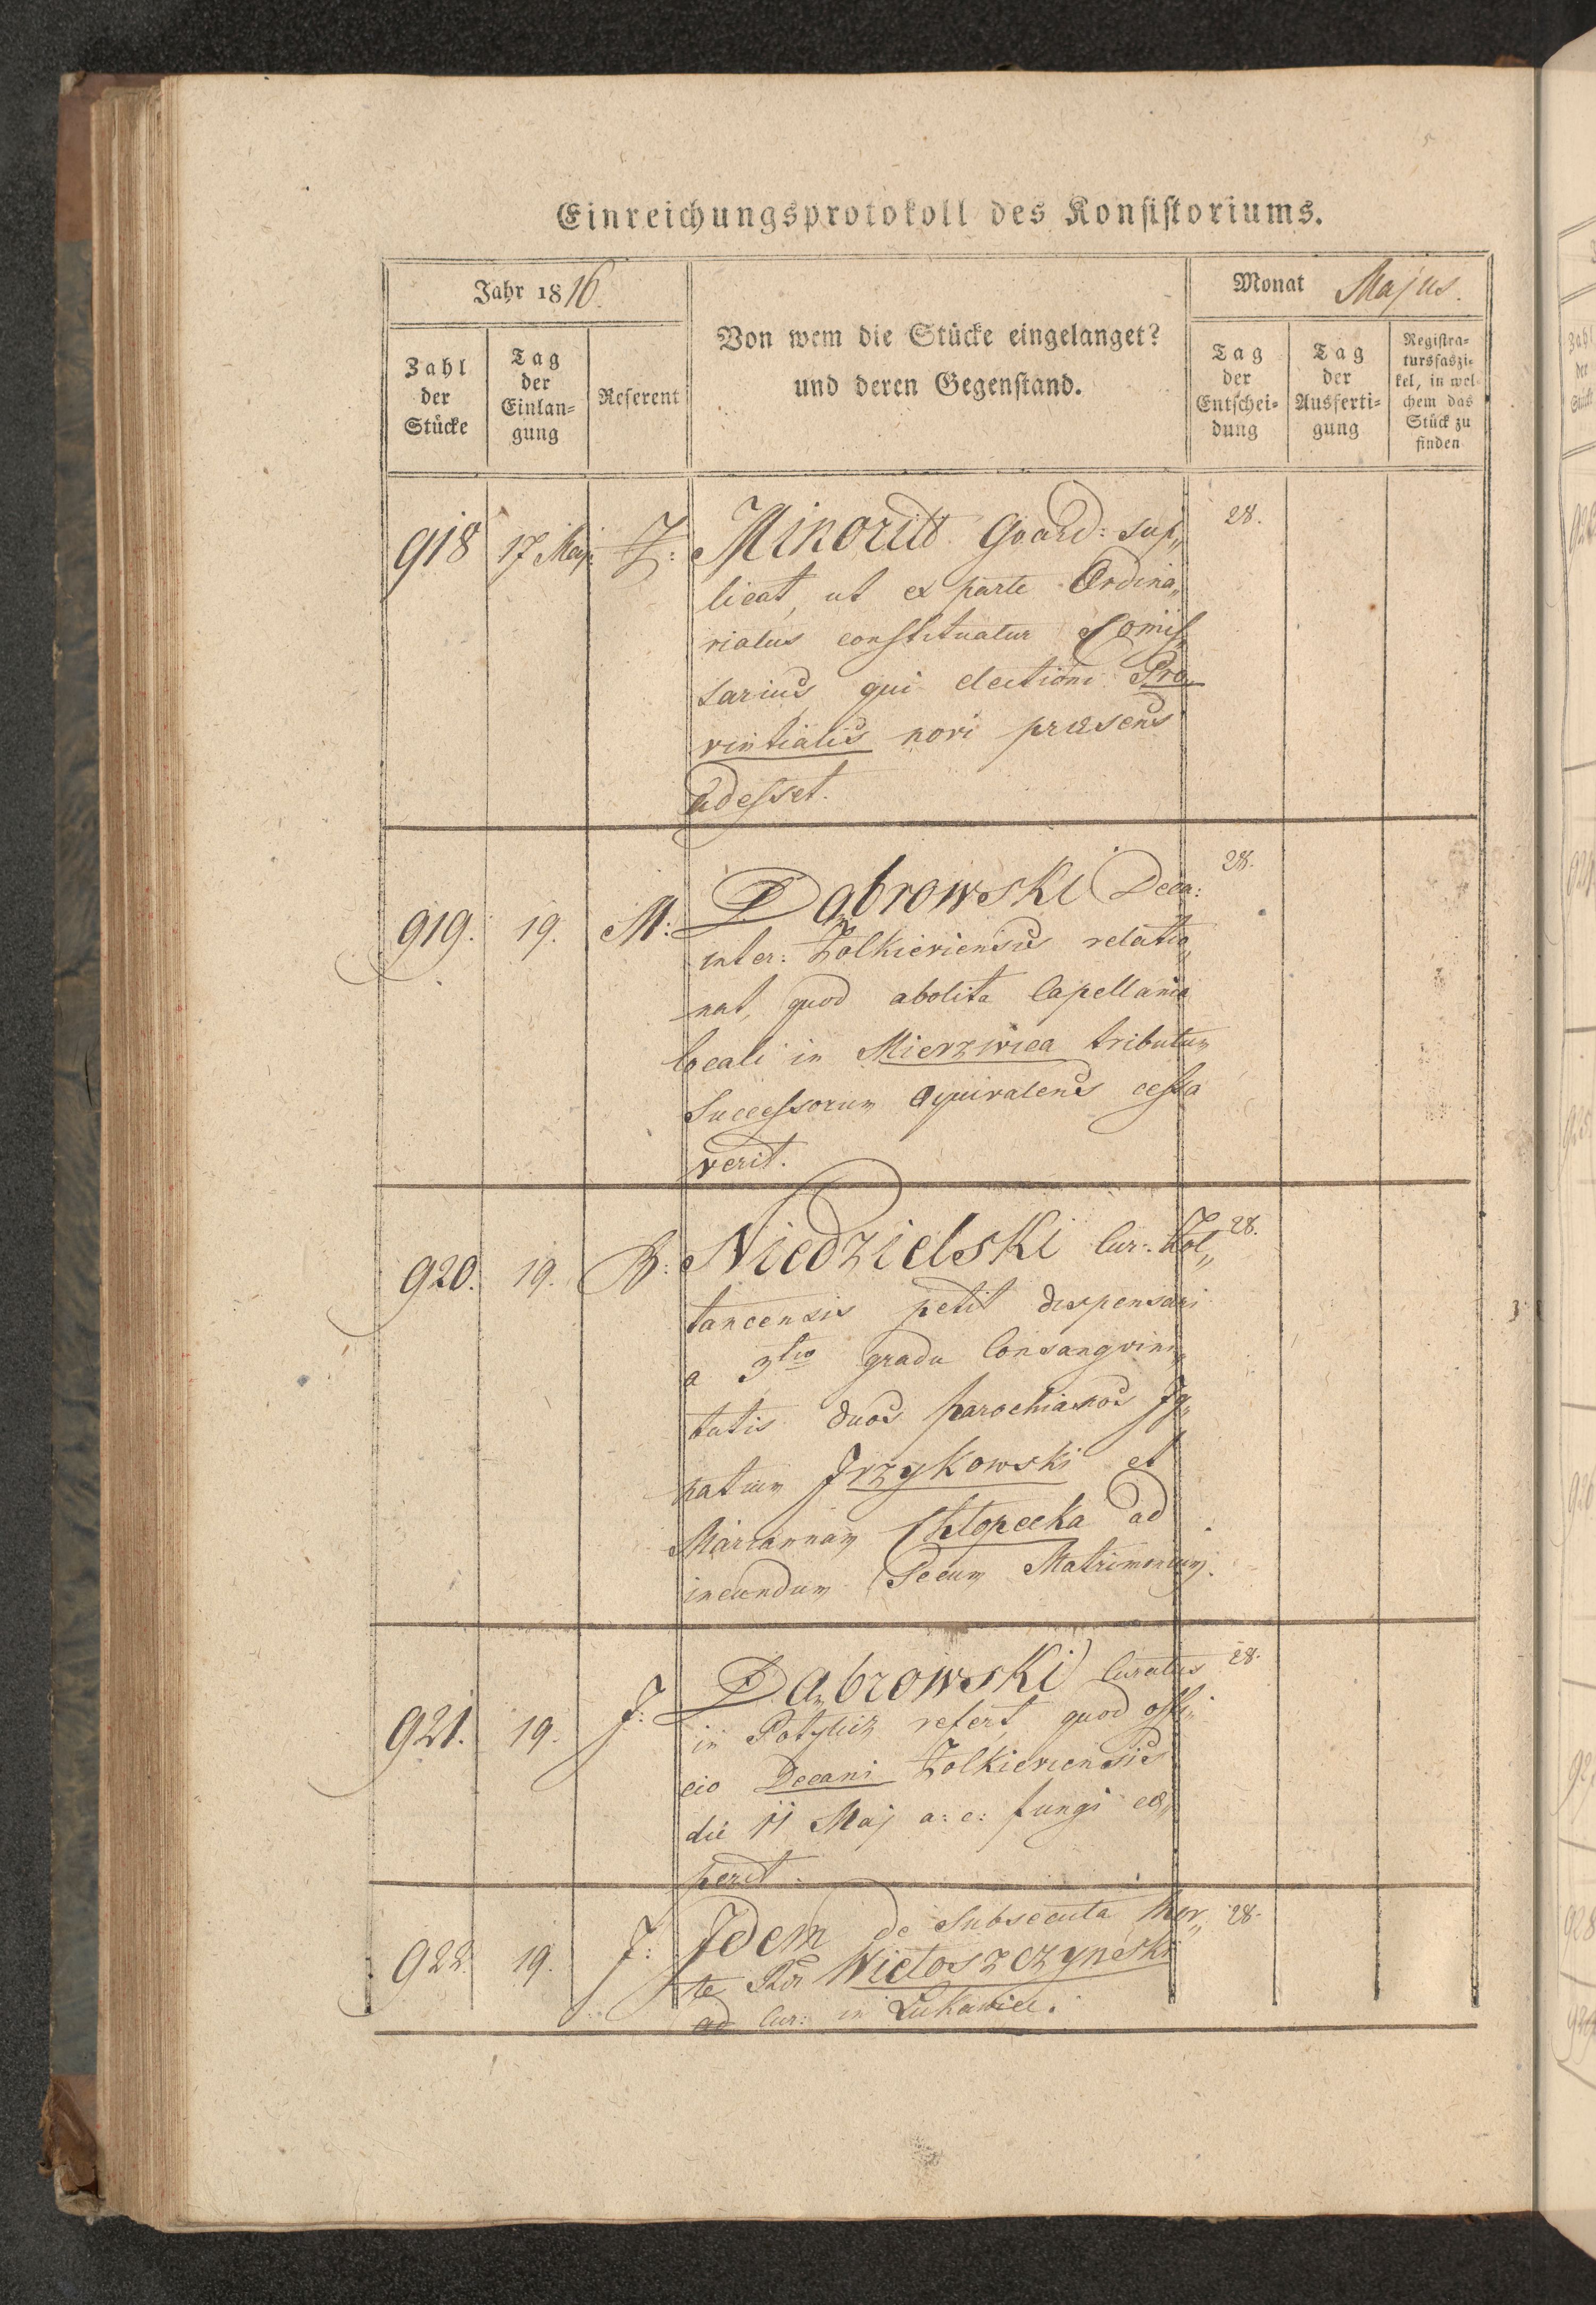 Einreichungsprotokoll des Konsistoriums.
Jahr 1816.
Monat Majus.
Zahl der Stücke
Tag der Einlan=gung
Referent
Von wem die Stücke eingelanget?
und deren Gegenstand.
Tag der Entschei=dung
Tag der Ausferti=gung
Registra=tursfaszi=kel, in wel chem das Stück zu finden
918 17 Maj. Z: Minorit Guard: sup„ 28.
licat, ut ex parte Ordina„
riatus constituatur Comis„
sarius, qui electioni Pro„
vintialis novi præsens
adesset.
919. 19. M: Dąbrowski Deca: 28.
inter: Zolkieviensis relatio„
nat, quod abolita Capellania
locali in Mierzwica tributum
Successorum equivalens cessa
verit.
920. 19. B: Niedzielski Cur: Zol„ 28.
tancensis petit dispensari
a 3tio gradu Consangvini„
tatis duos parochianos Ig„
natium Irzykowski et
Mariannam Chłopecka ad
ineundum Secum Matrimonium.
921. 19. J: Dąbrowski Curatus 28.
in Potylicz refert, quod offi„
cio Decani Zolkieviensis
die 11 Maj a: c: fungi cœ„
perit.
922. 19. J: Idem de Subsecuta Mor„ 28.
te Rdi Wietoszczynski
ad Cur: in Lukawica.